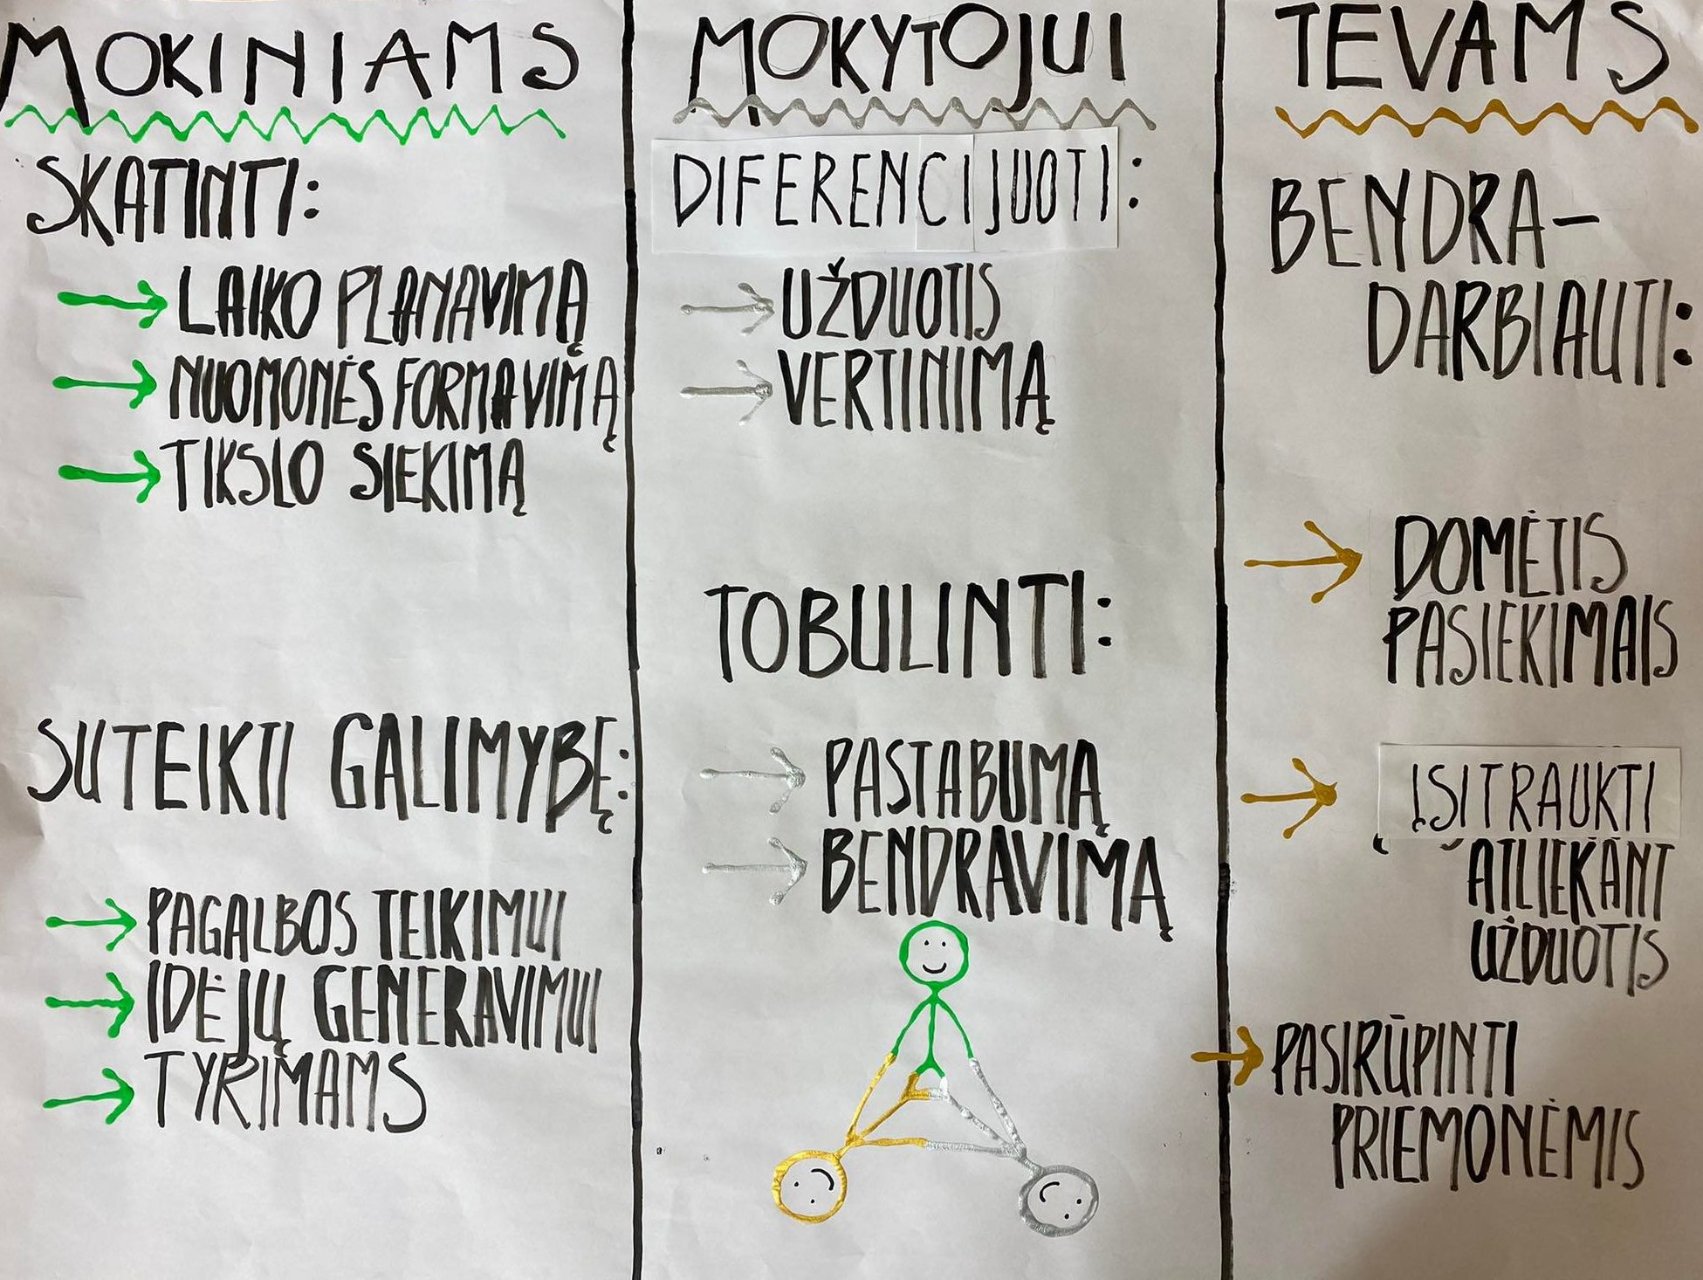 MOKINIAMS
SKATINTI:
LAIKO PLANAVIMĄ
NUOMONĖS FORMAVIMĄ
TIKSLO SIEKIMĄ
SUTEIKTI GALIMYBĘ:
PAGALBOS TEIKIMUI
IDĖJŲ GENERAVIMUI
TYRIMAMS
MOKYTOJUI
DIFERENCIJUOTI:
UŽDUOTIS
VERTINIMĄ
TOBULINTI:
PASTABUMĄ
BENDRAVIMĄ
TEVAMS
BENDRA-
DARBIAUTI:
DOMĖTIS
PASIEKIMAIS
ĮSITRAUKTI
ATLIEKANT
UŽDUOTIS
PASIRŪPINTI
PRIEMONĖMIS